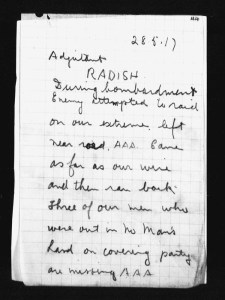 28.5.17
Adjutant
RADISH
During bombardment
Enemy attempted to raid
on our extreme left
near road. AAA. Came
as far as our wire
and then ran back
three of our men who
were out in No Man's
land on covering party
are missing AAA